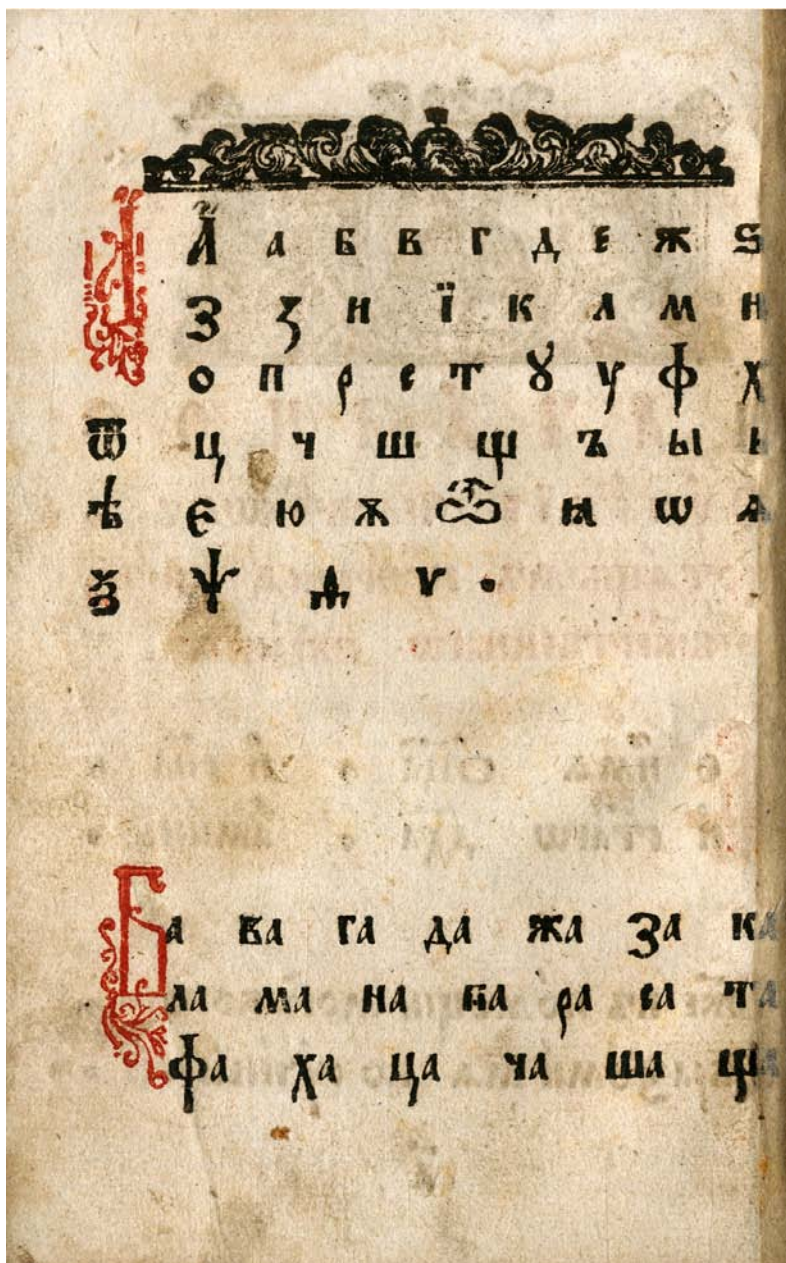 А А а б в г д е ж ѕ
З ȥ и ї к л м н
о п р с т ꙋ у ф х
ѿ ц ч ш щ ъ ы ь
ѣ є ю ѫ ѽ ꙗ ѡ ѧ
ѯ ѱ ѳ ѵ .
Ба ва га да жа За ка
ла ма на па ра са та
фа ха ца ча ша ща